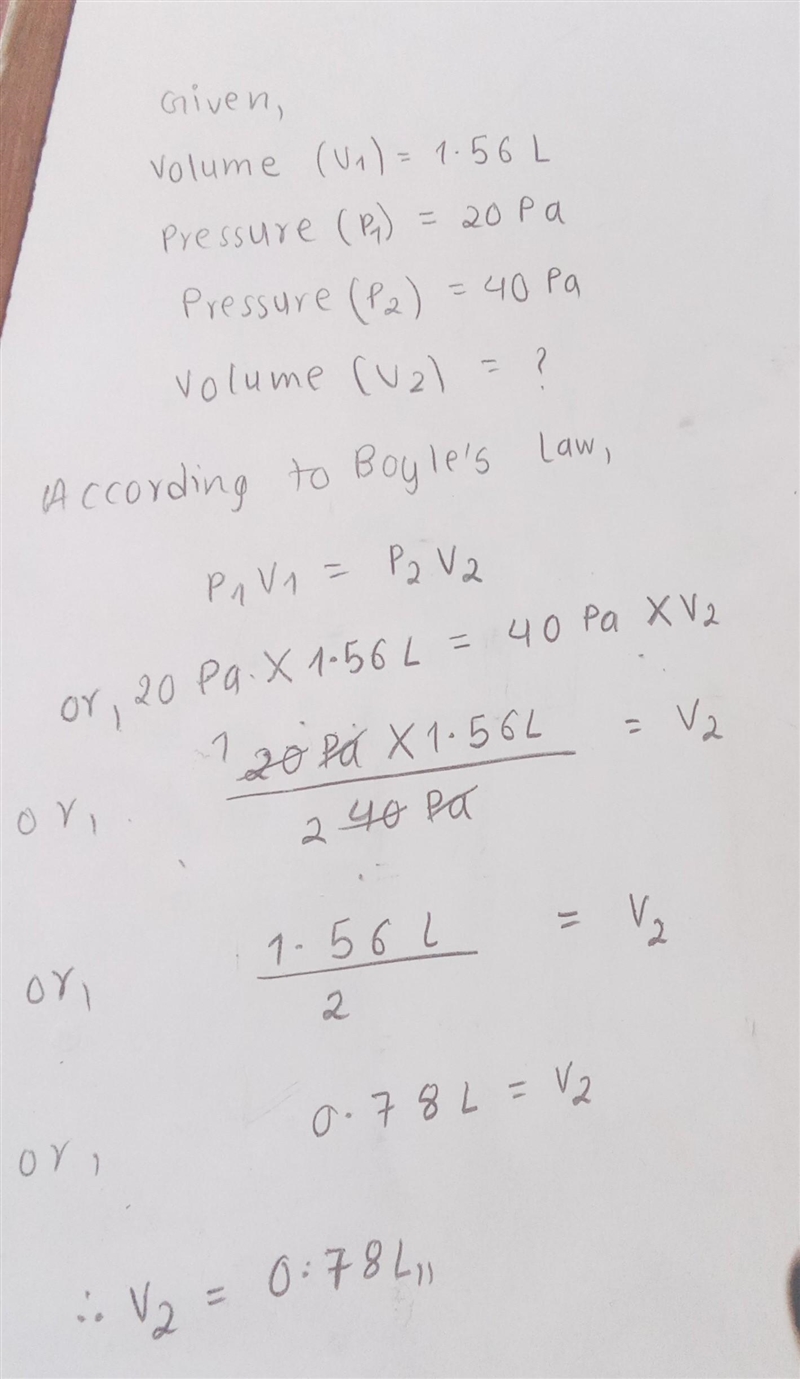 Given,
Volume (V1) = 1.56 L
Pressure (P1) = 20 Pa
Pressure (P2) = 40 Pa
Volume (V2) = ?
According to Boyle's Law,
P1 V1 = P2 V2
or, 20 Pa. X 1.56 L = 40 Pa X V2
1 20 Pa X 1.56L = V2
or, 2 40 Pa
1.56 L = V2
or, 2
0.78 L = V2
or,
∴ V2 = 0.78 L,,